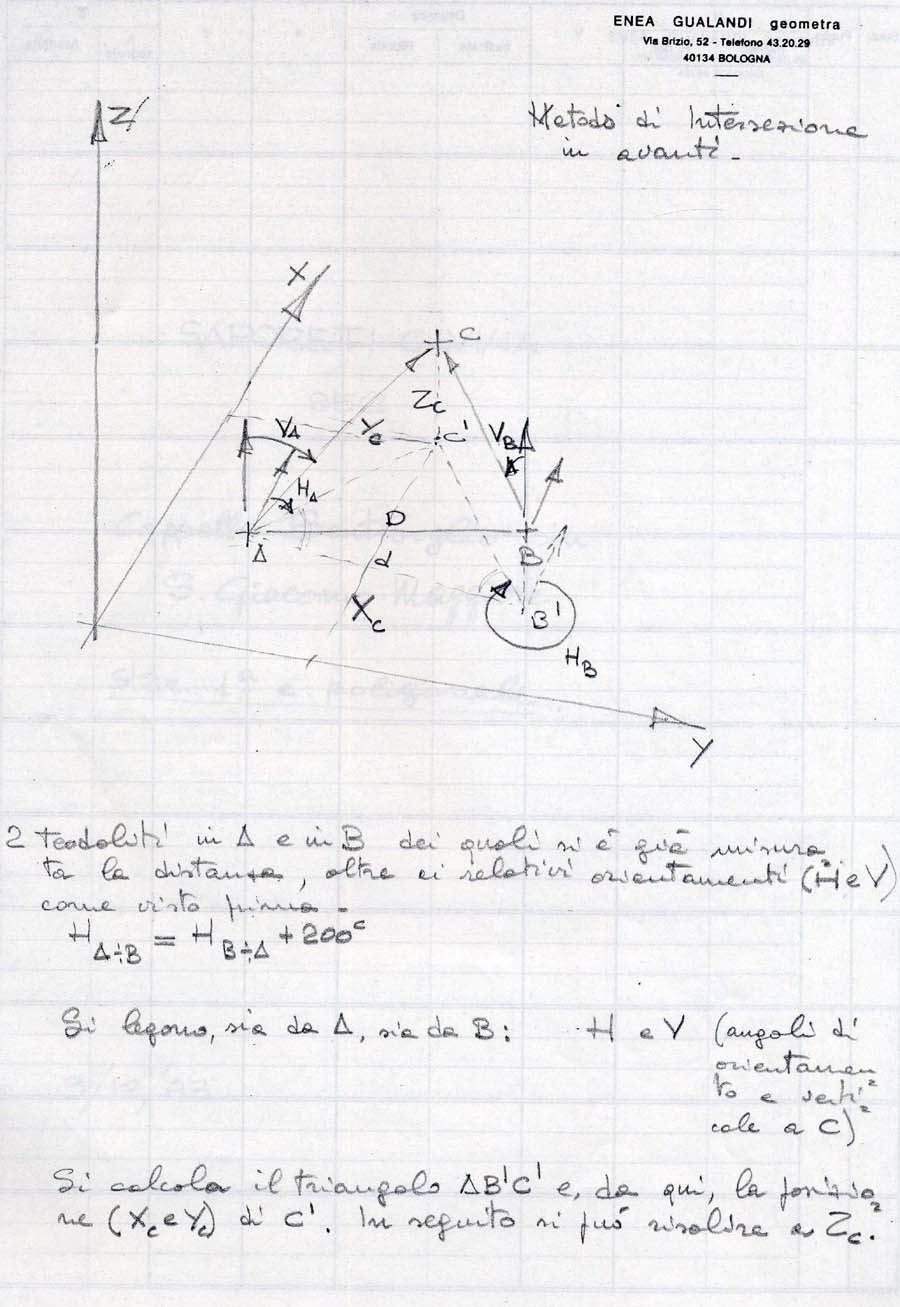 ENEA GUALANDI geometra
Via Brizio, 52 - Telefono 43.20.29
40134 BOLOGNA
Metodo di Intersezione
in avanti -
Z
X
C
Zc
VA
Yc
C'
VB
HA
D
A
B
d
Xc
B'
HB
Y
2 Teodoliti in A e in B dei quali si è già misura
ta la distanza, oltre ai relativi orientamenti (H e V)
come visto prima -
H A÷B = H B÷A + 200c
Si legono, sia da A, sia da B: H e V (angoli di
orientamen=
to e verti=
cale a C)
Si calcola il triangolo AB'C' e, da qui, la posizio=
ne (Xc e Yc) di C'. In seguito si può risalire a Zc.